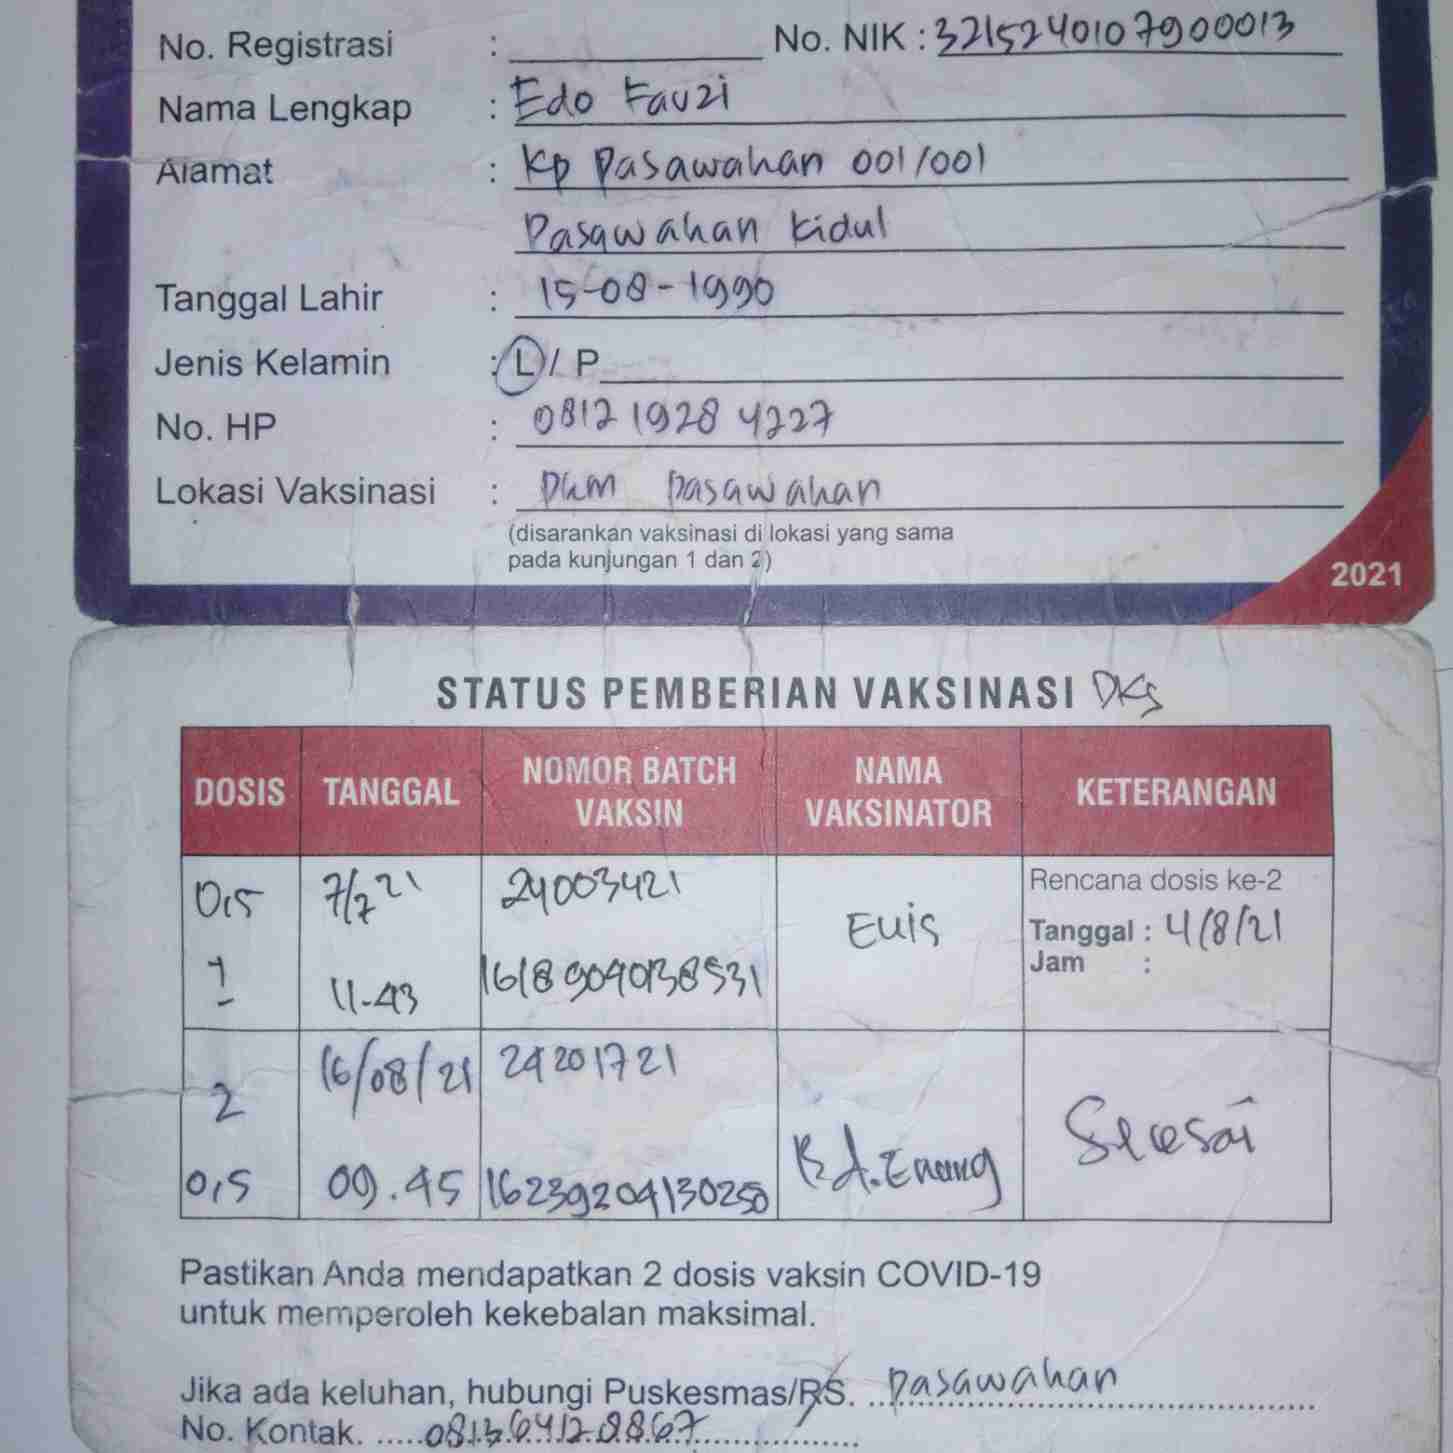 No. Registrasi : No. NIK : 3215240107900013
Nama Lengkap : Edo Fauzi
Alamat : Kp Pasawahan 001/001
Pasawahan Kidul
Tanggal Lahir : 15-08-1990
Jenis Kelamin : L / P
No. HP : 0812 1928 4227
Lokasi Vaksinasi : Pasawahan
(disarankan vaksinasi di lokasi yang sama
pada kunjungan 1 dan 2)
2021
STATUS PEMBERIAN VAKSINASI
DOSIS TANGGAL NOMOR BATCH VAKSIN NAMA VAKSINATOR KETERANGAN
0,5 7/7 21 24003421 Euis Rencana dosis ke-2
Tanggal : 4/8/21
Jam :
1 11-43 16189040138531
2 16/08/21 24201721 Selesai
0,5 09.45 16239204130250
Pastikan Anda mendapatkan 2 dosis vaksin COVID-19
untuk memperoleh kekebalan maksimal.
Jika ada keluhan, hubungi Puskesmas/RS. Pasawahan
No. Kontak.